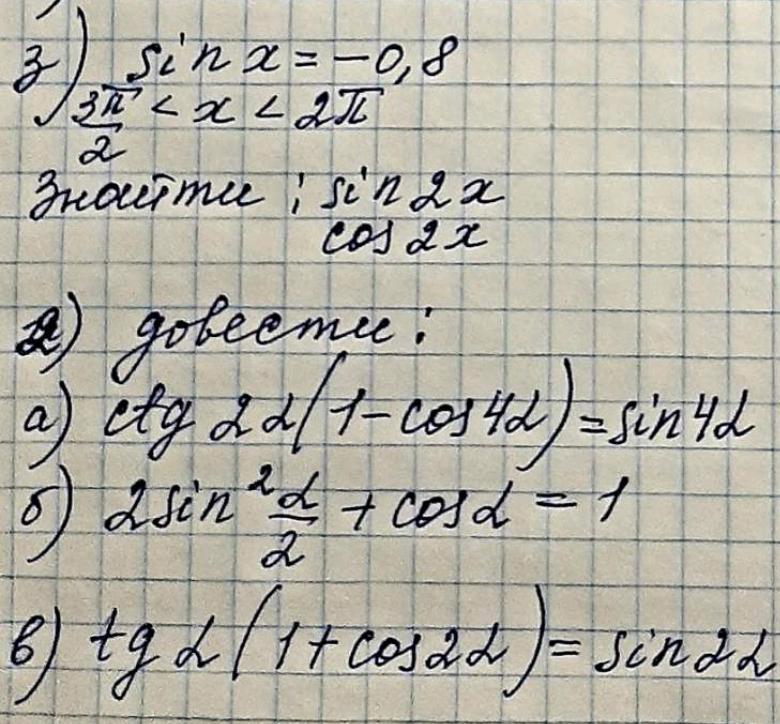 з) sin x = -0,8
3π/2 < x < 2π
Знайти: sin 2x
cos 2x
2) довести:
а) ctg 2α(1-cos4α)=sin4α
б) 2sin² α/2 + cosα = 1
в) tg α(1+cos2α)= sin2α